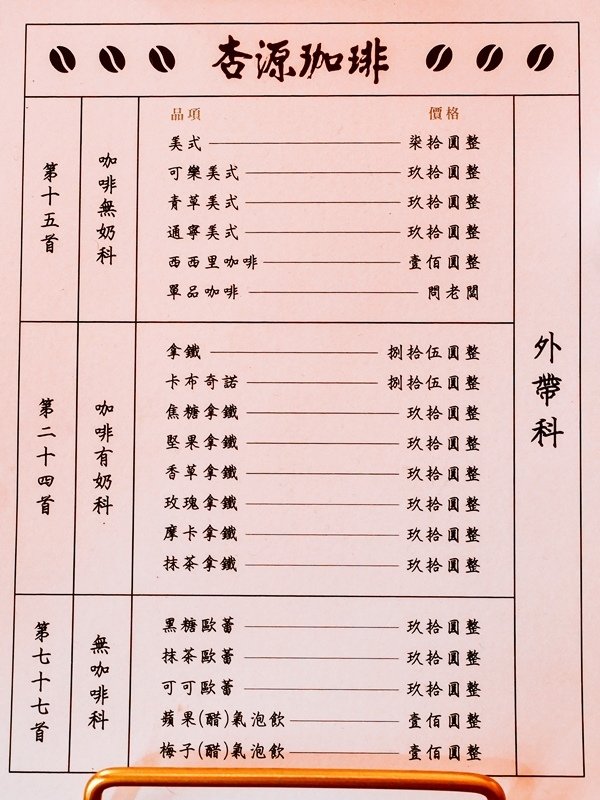 杏源珈琲
品項 價格
美式 柒拾圓整
可樂美式 玖拾圓整
青草美式 玖拾圓整
通寧美式 玖拾圓整
西西里咖啡 壹佰圓整
單品咖啡 問老闆
第十五首
咖啡無奶科
拿鐵 捌拾伍圓整
卡布奇諾 捌拾伍圓整
焦糖拿鐵 玖拾圓整
堅果拿鐵 玖拾圓整
香草拿鐵 玖拾圓整
玫瑰拿鐵 玖拾圓整
摩卡拿鐵 玖拾圓整
抹茶拿鐵 玖拾圓整
第二十四首
咖啡有奶科
黑糖歐蕾 玖拾圓整
抹茶歐蕾 玖拾圓整
可可歐蕾 玖拾圓整
蘋果(醋)氣泡飲 壹佰圓整
梅子(醋)氣泡飲 壹佰圓整
第七十七首
無咖啡科
外帶科